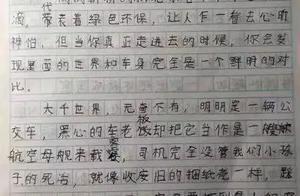 滴，代表着绿色环保，让人乍一看去心旷
神怡，但当你真正走进去的时候，你会发
现里面的世界和车身完全是一个鲜明的对
比。
大千世界，无奇不有，明明是一辆公
交车，黑心的车老板却把它当作是一艘
航空母舰来载客，司机完全没管我们小孩
子的死活，就像收废旧的捆纸老一样，